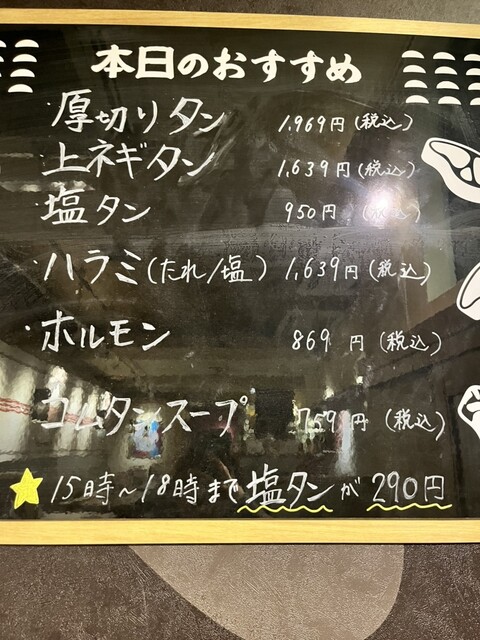 本日のおすすめ
・厚切りタン 1,969円(税込)
・上ネギタン 1,639円(税込)
・塩タン 950円(税込)
・ハラミ(たれ/塩) 1,639円(税込)
・ホルモン 869円(税込)
・コムタンスープ 759円(税込)
15時~18時まで塩タンが290円